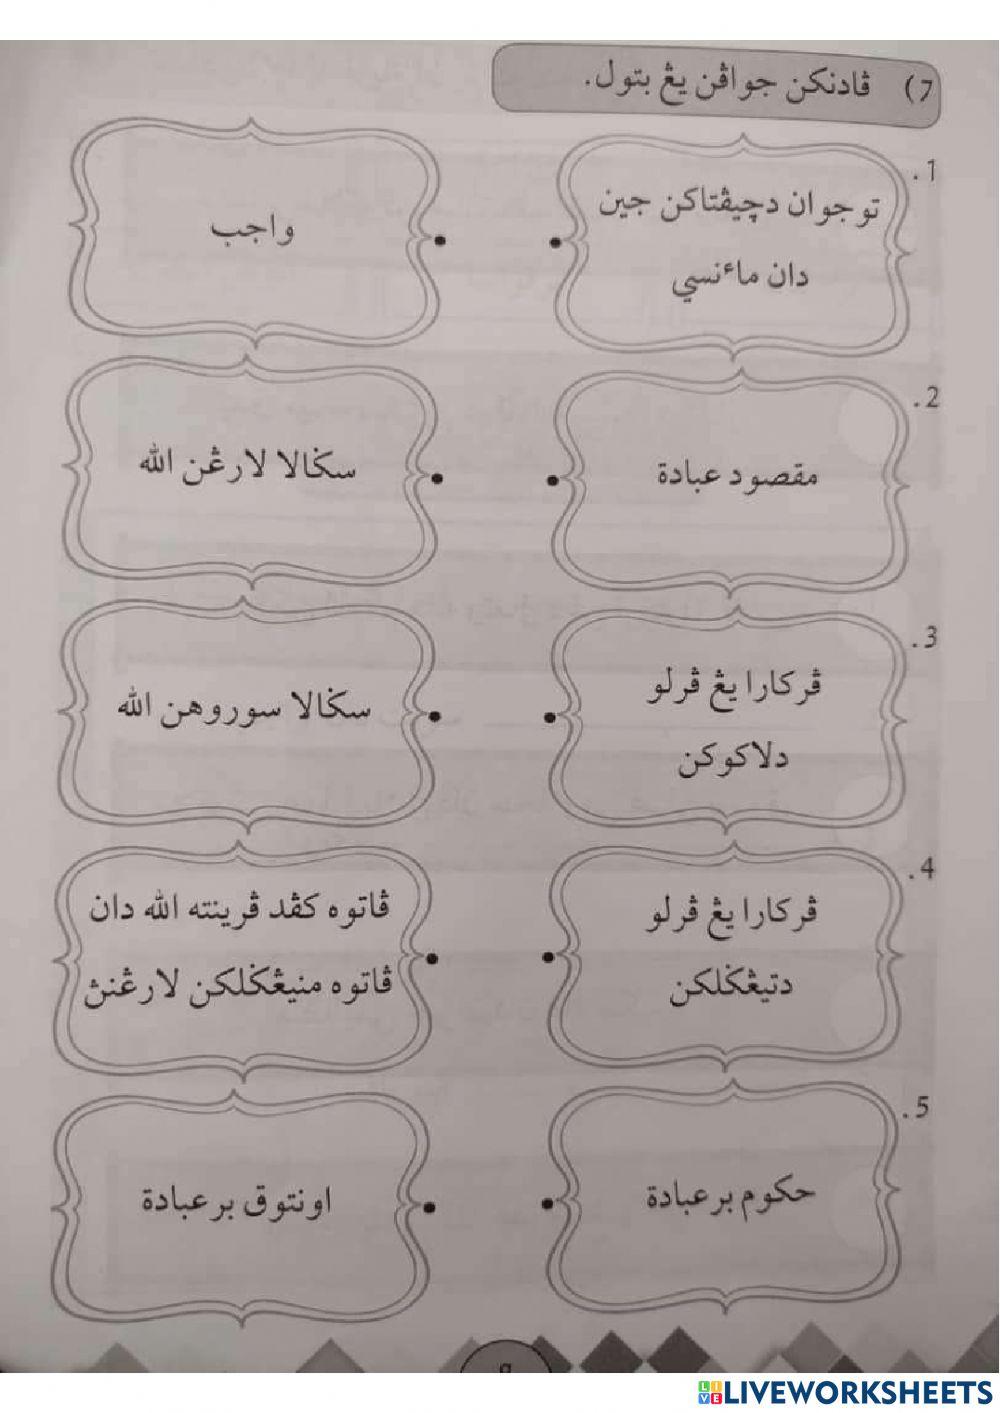 7) ڤادنکن جواڤن يڠ بتول.
1. توجوان دچيڤتاکن جين
دان ماءنسي
واجب
2. مقصود عبادة
سڬالا لارڠن الله
3. ڤرکارا يڠ ڤرلو
دلاکوکن
سڬالا سوروهن الله
4. ڤرکارا يڠ ڤرلو
دتيڠڬلکن
ڤاتوه کڤد ڤرينته الله دان
ڤاتوه منيڠڬلکن لارڠنڽ
5. حکوم برعبادة
اونتوق برعبادة
LIVEWORKSHEETS